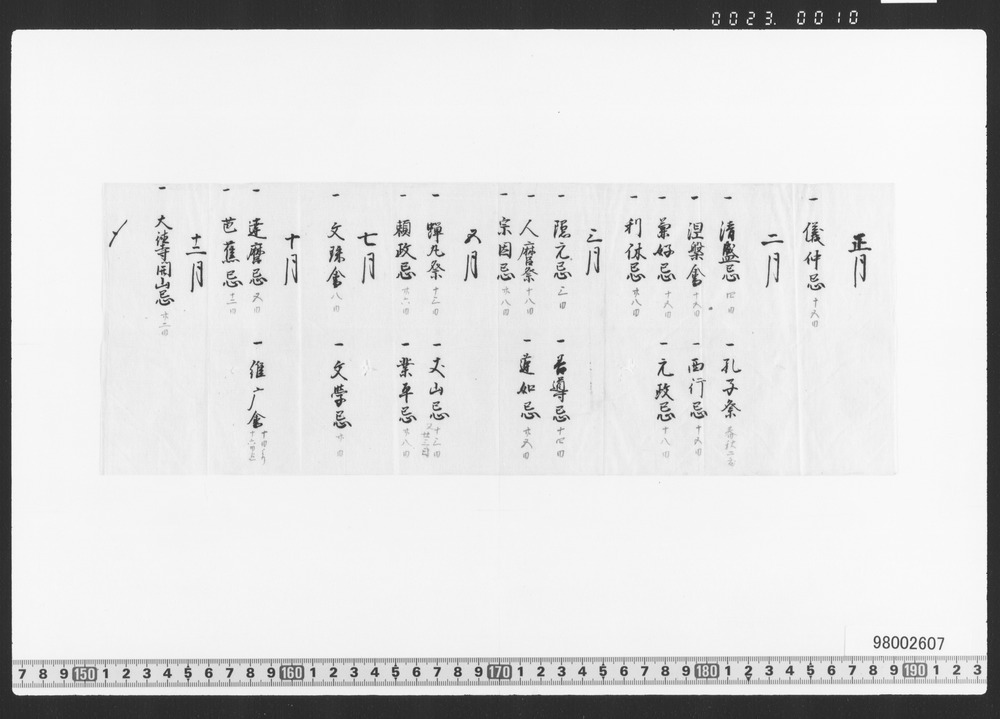 0023.0010
正月
一 儀仲忌 十五日
二月
一 清盛忌 四日
一 孔子祭 春秋二季
一 涅槃會 十五日
一 西行忌 十五日
一 兼好忌 十五日
一 元政忌 十八日
一 利休忌 廿八日
三月
一 隠元忌 三日
一 善導忌 十四日
一 人麿祭 十八日
一 蓮如忌 廿五日
一 宗因忌 廿八日
五月
一 蝉丸祭 十三日
一 丈山忌 十三日
又廿三日
一 頼政忌 廿六日
一 業平忌 廿八日
七月
一 文珠會 八日
一 文學忌 廿 日
十月
一 達磨忌 五日
一 維广會 十日より
十六日迄
一 芭蕉忌 十二日
十二月
一 大徳寺開山忌 廿二日
98002607
7 8 9 150 1 2 3 4 5 6 7 8 9 160 1 2 3 4 5 6 7 8 9 170 1 2 3 4 5 6 7 8 9 180 1 2 3 4 5 6 7 8 9 190 1 2 3